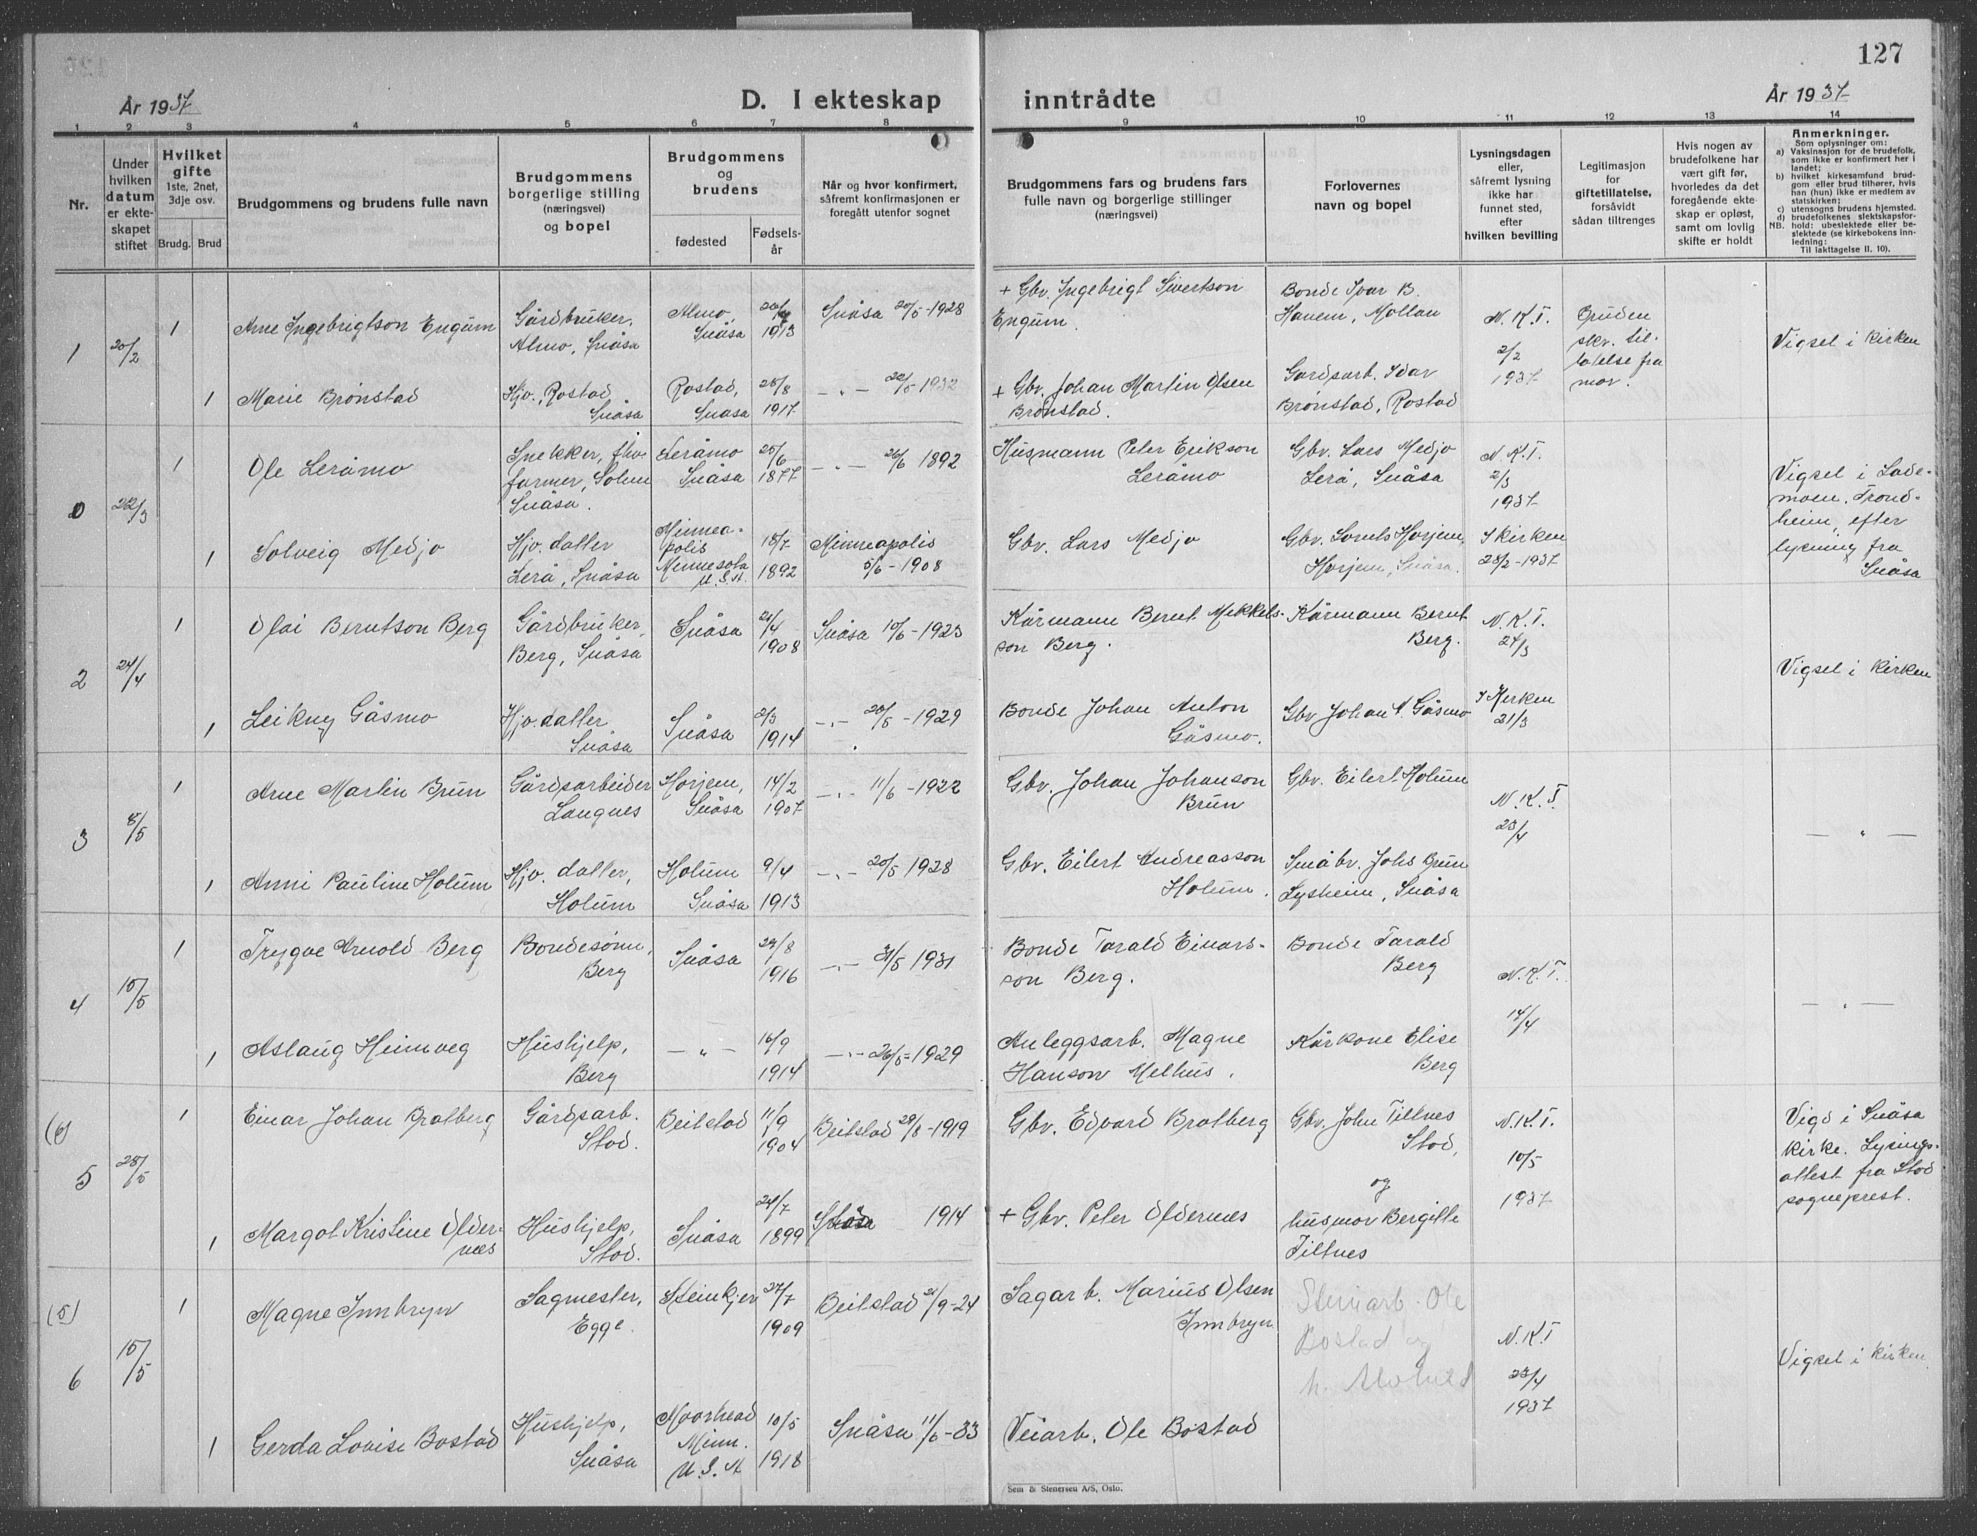 127
År 1937
D. I ekteskap inntrådte
År 1937
1 2 3 4 5 6 7 8 9 10 11 12 13 14
Nr.
Under hvilken datum er ekteskapet stiftet
Hvilket gifte
1ste, 2net, 3dje osv.
Brudg. Brud
Brudgommens og brudens fulle navn
Brudgommens borgerlige stilling (næringsvei) og bopel
Brudgommens og brudens
fødested
Fødselsår
Når og hvor konfirmert, såfremt konfirmasjonen er foregått utenfor sognet
Brudgommens fars og brudens fars fulle navn og borgerlige stillinger (næringsvei)
Forlovernes navn og bopel
Lysningsdagen eller, såfremt lysning ikke har funnet sted, efter hvilken bevilling
Legitimasjon for giftetillatelse, forsåvidt sådan tiltrenges
Hvis nogen av brudefolkene har vært gift før, hvorledes da det foregående ekteskap er opløst, samt om lovlig skifte er holdt
Anmerkninger.
Som oplysning om:
a) Vaksinasjon for de brudefolk, som ikke er konfirmert her i landet;
b) hvilket kirkesamfund brudgom eller brud tilhører, hvis han (hun) ikke er medlem av statskirken;
c) utensogns brudens hjemsted.
d) brudefolkenes slektskapsforhold: ubeslektede eller beslektede (se kirkebokens innledning:
NB. Til iakttagelse II. 10).
1 20/2 1 Arne Ingebrigtson Engum Gårdbruker, Almo, Snåsa Almo, Snåsa 1913 Snåsa 20/5-1928 + Gbv. Ingebrigt Sivertson Engum. Bonde Ivar B. Havem, Mollan N.K.T. 2/2 1937 Bruden skr. tillatelse fra mor. Vigsel i kirken
1 Marie Brønstad Hjv., Rostad Snåsa Rostad, Snåsa 28/8 1917 22/5-1932 + Gbv. Johan Martin Olsen Brønstad. Gardsarb. Idar Brønstad, Rostad
0 22/3 1 Ole Leråmo Snekker, fhv. farmer, Solum Snåsa. Leråmo Snåsa 25/6 1877 26/6 1892 Husmann Peter Erikson Leråmo Gbv. Lars Medjo Lerå, Snåsa N.K.T. 2/3 1937 Vigsel i Lademoen, Trondheim, efter lysning fra Snåsa
1 Solveig Medjo Hjv. datter Lerå, Snåsa Minneapolis Minnesota U.S.A. 18/7 1892 Minneapolis 5/6-1908 Gbv. Lars Medjo Gbv. Horjem, Horjem, Snåsa. I kirken 28/2-1937
2 24/4 1 Olai Berntson Berg Gårdbruker, Berg, Snåsa Snåsa 21/4 1908 Snåsa 10/6-1923 Kårmann Bernt Mikkelsson Berg. Kårmann Bernt Berg. N.K.T. 24/3 Vigsel i kirken
1 Leikny Gåsmo Hjv. datter Snåsa Snåsa 2/3 1914 -.- 20/5-1929 Bonde Johan Anton Gåsmo. Gbv Johan A. Gåsmo I Kirken 21/3
3 8/5 1 Arne Martin Brun Gårdsarbeider Langnes Horjem, Snåsa 14/2 1907 -.- 11/6-1922 Gbv. Johan Johanson Brun Gbv. Eilert Holum N.K.T. 23/4 — " —
1 Anni Pauline Holum Hjv. datter, Holum Holum Snåsa 9/4 1913 -.- 20/5-1928 Gbv. Eilert Andreasson Holum. Småbv. Johs Brun Lysheim, Snåsa
4 15/5 1 Trygve Arnold Berg Bondesønn, Berg Snåsa 29/8 1916 -.- 31/5 1931 Bonde Tarald Einarsson Berg. Bonde Tarald Berg N.K.T. 14/4 — " —
1 Aslaug Heimveg Hushjelp, Berg — " — 16/9 1914 -.- 26/5-1929 Anleggsarb. Magne Hanson Melhus. Kårkone Elise Berg
(6) 5 28/5 1 Einar Johan Bratberg Gårdsarb. Stod. Beitstad 11/9 1904 Beitstad 29/8-1919 Gbv. Edvard Bratberg Gbv. John Tiltnes Stod, og N.K.T. 10/5 1937 Vigd i Snåsa kirke. Lysingsattest fra Stod sogneprest.
1 Margot Kristine Oldernes Hushjelp, Stod. Snåsa 24/7 1899 Snåsa 1914 + Gbv. Peter Oldernes husmor Bergitte Tiltnes
(5) 6 15/5 1 Magne Innbryn Sagmester, Egge. Steinkjer 27/7 1909 Beitstad 21/9-24 Sagarb. Marius Olsen Innbryn Steinarb. Ole Bostad og N.K.T 23/4 1937 Vigsel i kirken.
1 Gerda Lovise Bostad Hushjelp, Snåsa Moorhead Minn. U.S.A 10/5 1918 Snåsa 11/6-33 Veiarb. Ole Bostad
Sem & Stenersen A/S, Oslo.